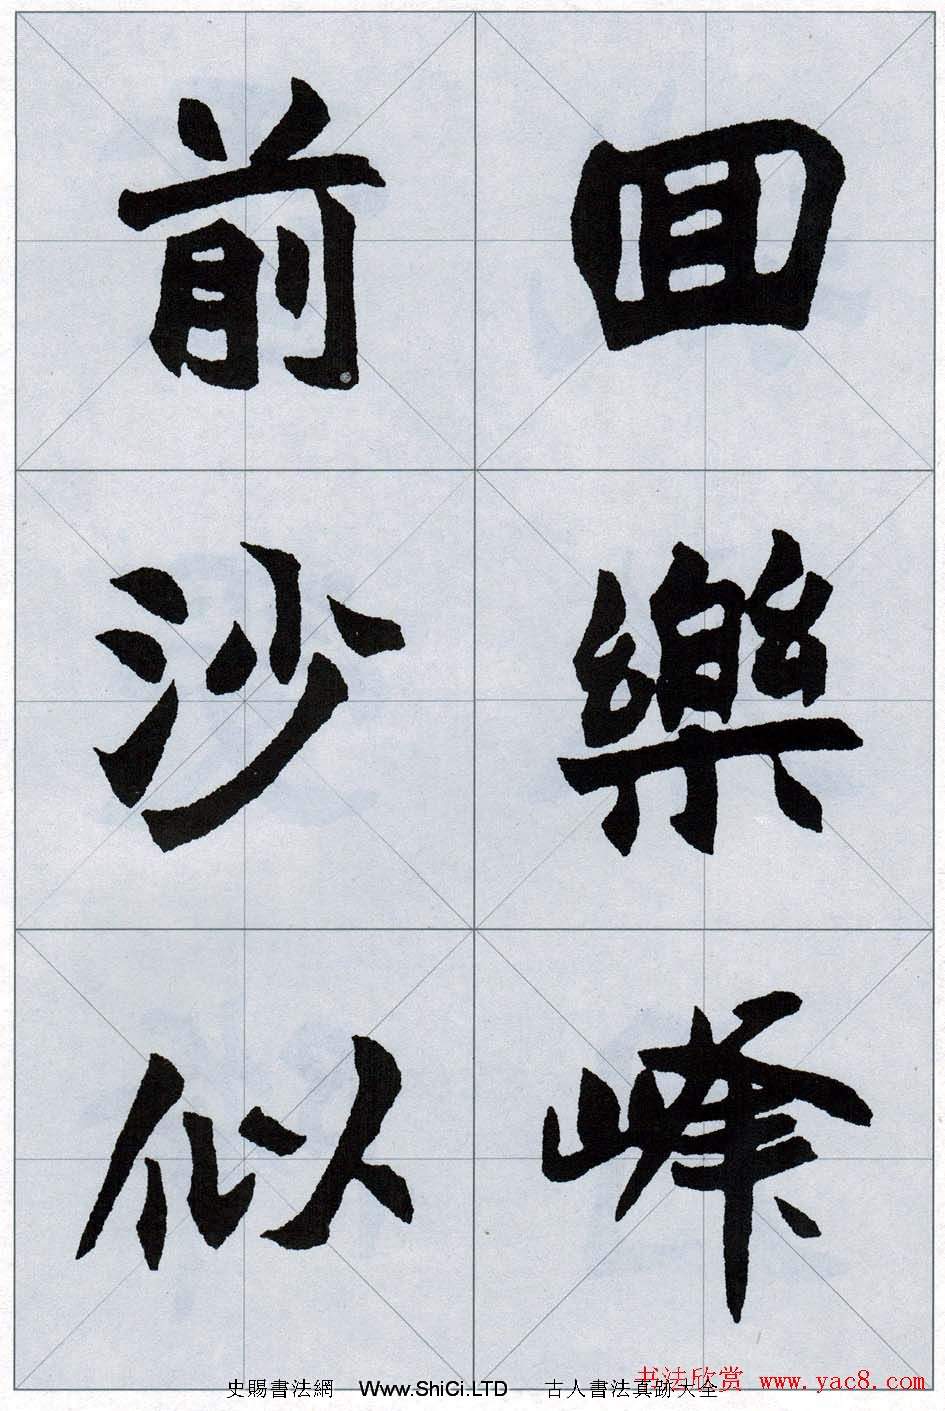 回樂峰
前沙似
书法欣赏 www.yac8.com
史賜書法網 Www.ShiCi.LTD 古人書法真跡大全